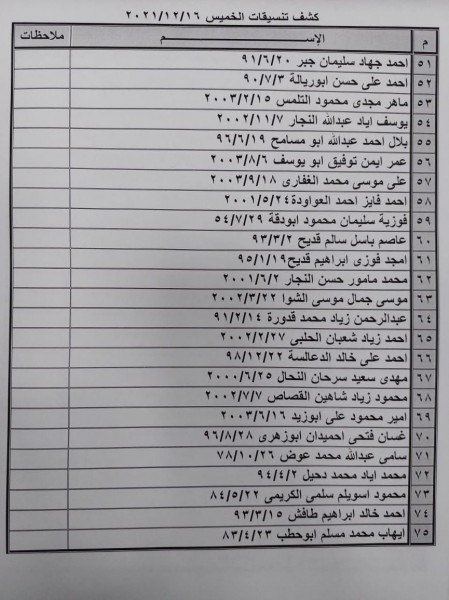 كشف تنسيقات الخميس ٢٠٢١/١٢/١٦
م الإســـم ملاحظات
٥١ احمد جهاد سليمان جبر ٩١/٦/٢٠
٥٢ احمد على حسن ابوريالة ٩٠/٧/٣
٥٣ ماهر مجدى محمود التلمس ٢٠٠٣/٢/١٥
٥٤ يوسف اياد عبدالله النجار ٢٠٠٢/١١/٧
٥٥ بلال احمد عبدالله ابو مسامح ٩٦/٦/١٩
٥٦ عمر ايمن توفيق ابو يوسف ٢٠٠٣/٨/٦
٥٧ على موسى محمد الغفارى ٢٠٠٣/٩/١٨
٥٨ احمد فايز احمد العواودة ٢٠٠١/٥/٢٤
٥٩ فوزية سليمان محمود ابودقة ٥٤/٧/٢٩
٦٠ عاصم باسل سالم قديح ٩٣/٣/٢
٦١ امجد فوزى ابراهيم قديح ٩٥/١/١٩
٦٢ محمد مامور حسن النجار ٢٠٠١/٦/٢
٦٣ موسى جمال موسى الشوا ٢٠٠٢/٣/٢٢
٦٤ عبدالرحمن زياد محمد قدورة ٩١/٢/١٤
٦٥ احمد زياد شعبان الحلبى ٢٠٠٢/٢/٢٧
٦٦ احمد على خالد الدعالسة ٩٨/١٢/٢٢
٦٧ مهدى سعيد سرحان النحال ٢٠٠٠/٦/٢٥
٦٨ محمود زياد شاهين القصاص ٢٠٠٢/٧/٧
٦٩ امير محمود على ابوزيد ٢٠٠٣/٦/١٦
٧٠ غسان فتحى احميدان ابوزهرى ٩٦/٨/٢٨
٧١ سامى عبدالله محمد عوض ٧٨/١٠/٢٦
٧٢ محمد اياد محمد دحيل ٩٤/٤/٢
٧٣ محمود اسويلم سلمى الكريمى ٨٤/٥/٢٢
٧٤ احمد خالد ابراهيم طافش ٩٣/٣/١٥
٧٥ ايهاب محمد مسلم ابوحطب ٨٣/٤/٢٣